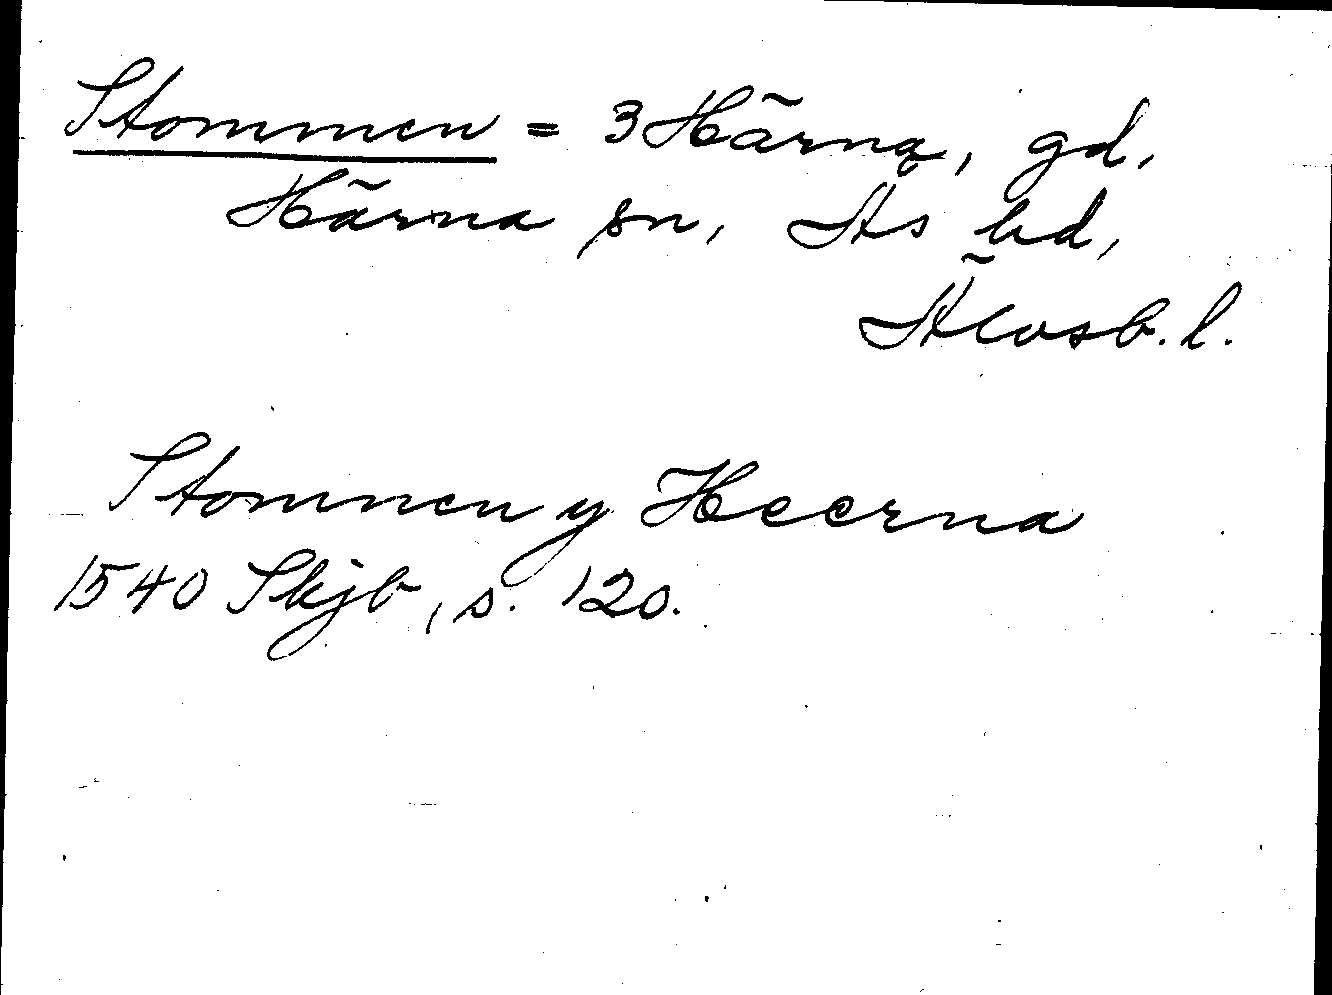 Stommen = 3 Härna, gd,
Härna sn, Ås hd,
Älvsb. l.
Stommen y Heerna
1540 Skjb, s. 120.